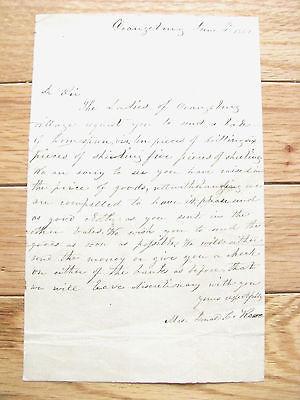 Orangeburg June
Dr Sir
The Ladies of Orangeburg
village request you to send a bale
of homespun, viz, ten pieces of shirting six
pieces of shirting five pieces of sheeting
We are sorry to see you have raised in
the price of goods, notwithstanding we
are compelled to have it, please send
as good cloth as you sent in the
other bales. We wish you to send the
goods as soon as possible. We will either
send the money or give you a check
on either of the banks as before, that
we will leave discretionary with you
yours respectfully
Mrs.